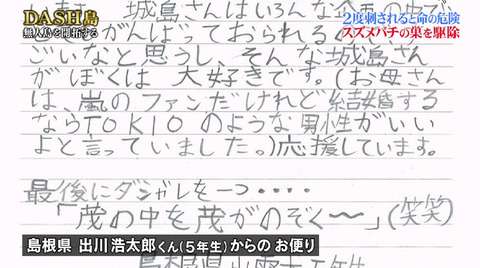 DASH島
無人島を開拓する
2度刺されると命の危険
スズメバチの巣を駆除
城島さんはいろんな企画の中で
がんばっておられる
ごいなと思うし、そんな城島さん
がぼくは大好きです。(お母さん
は、嵐のファンだけれど結婚する
ならTOKIOのような男性がいい
よと言っていました。)応援しています。
最後にダジャレを一つ・・・・
「茂の中を茂がのぞく〜」(笑笑)
島根県 出川 浩太郎くん(5年生)からの お便り
島根県出雲市